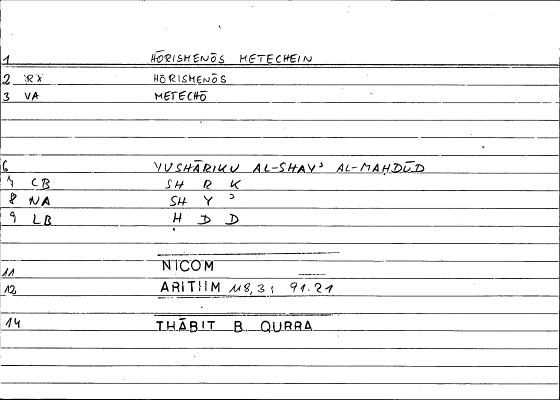 1 HŌRISMENŌS METECHEIN
2 RX HŌRISMENŌS
3 VA METECHŌ
6 YUSHĀRIKU AL-SHAYʾ AL-MAḤDŪD
7 CB SH R K
8 NA SH Y ʾ
9 LB H D D
11 NICOM
12 ARITHM 118,3; 91.21
14 THĀBIT B QURRA